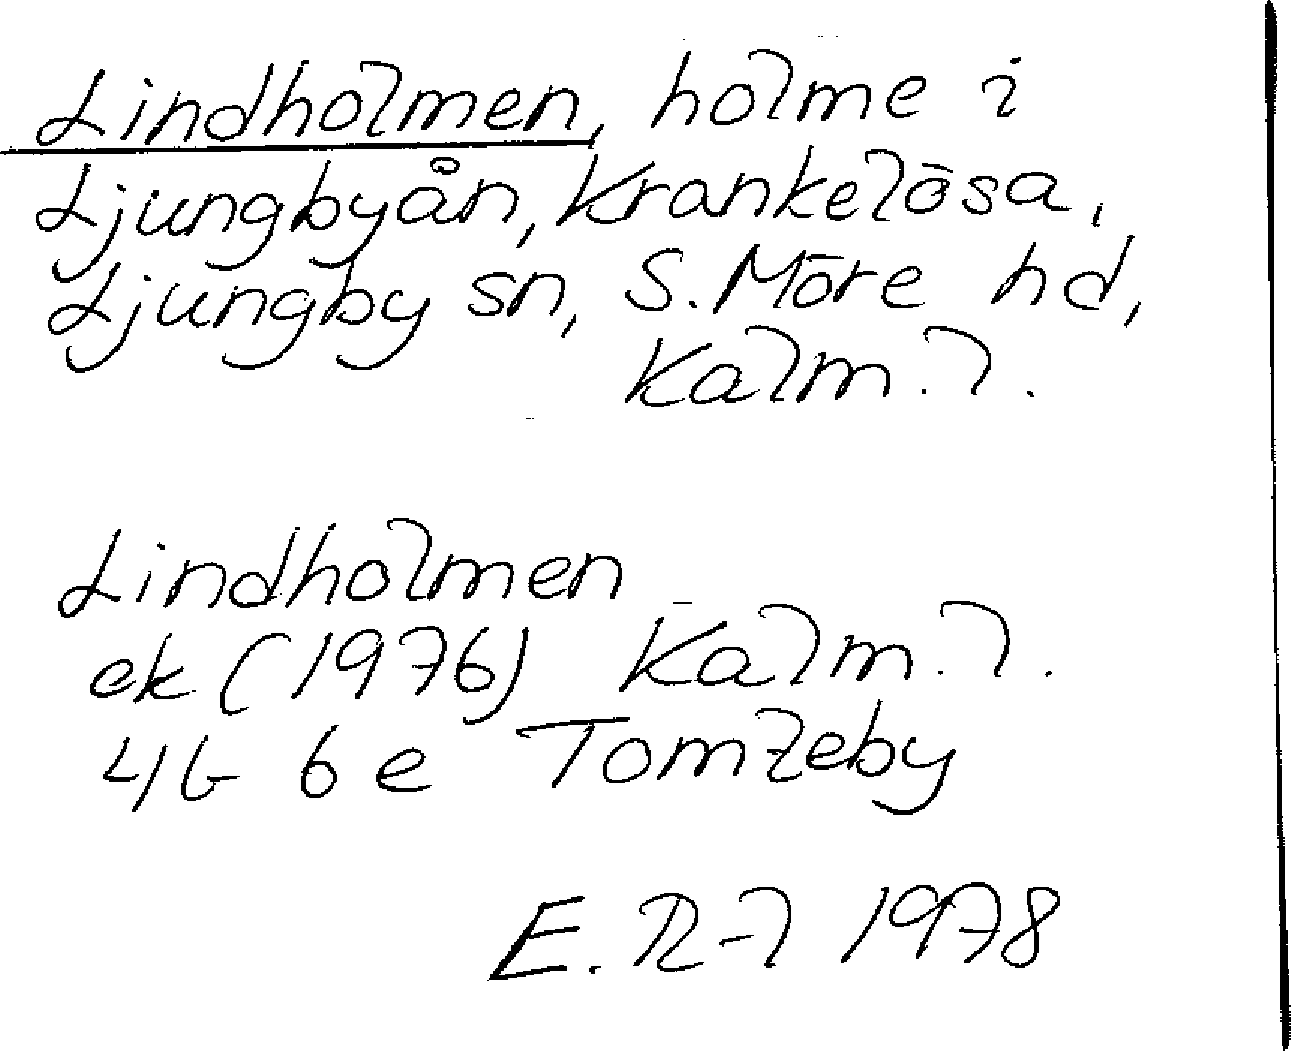 Lindholmen, holme i
Ljungbyån, Krankelösa,
Ljungby sn, S. Möre hd,
Kalm. l.
Lindholmen
ek (1976) Kalm. l.
4G 6e Tomteby
E. R-l 1978